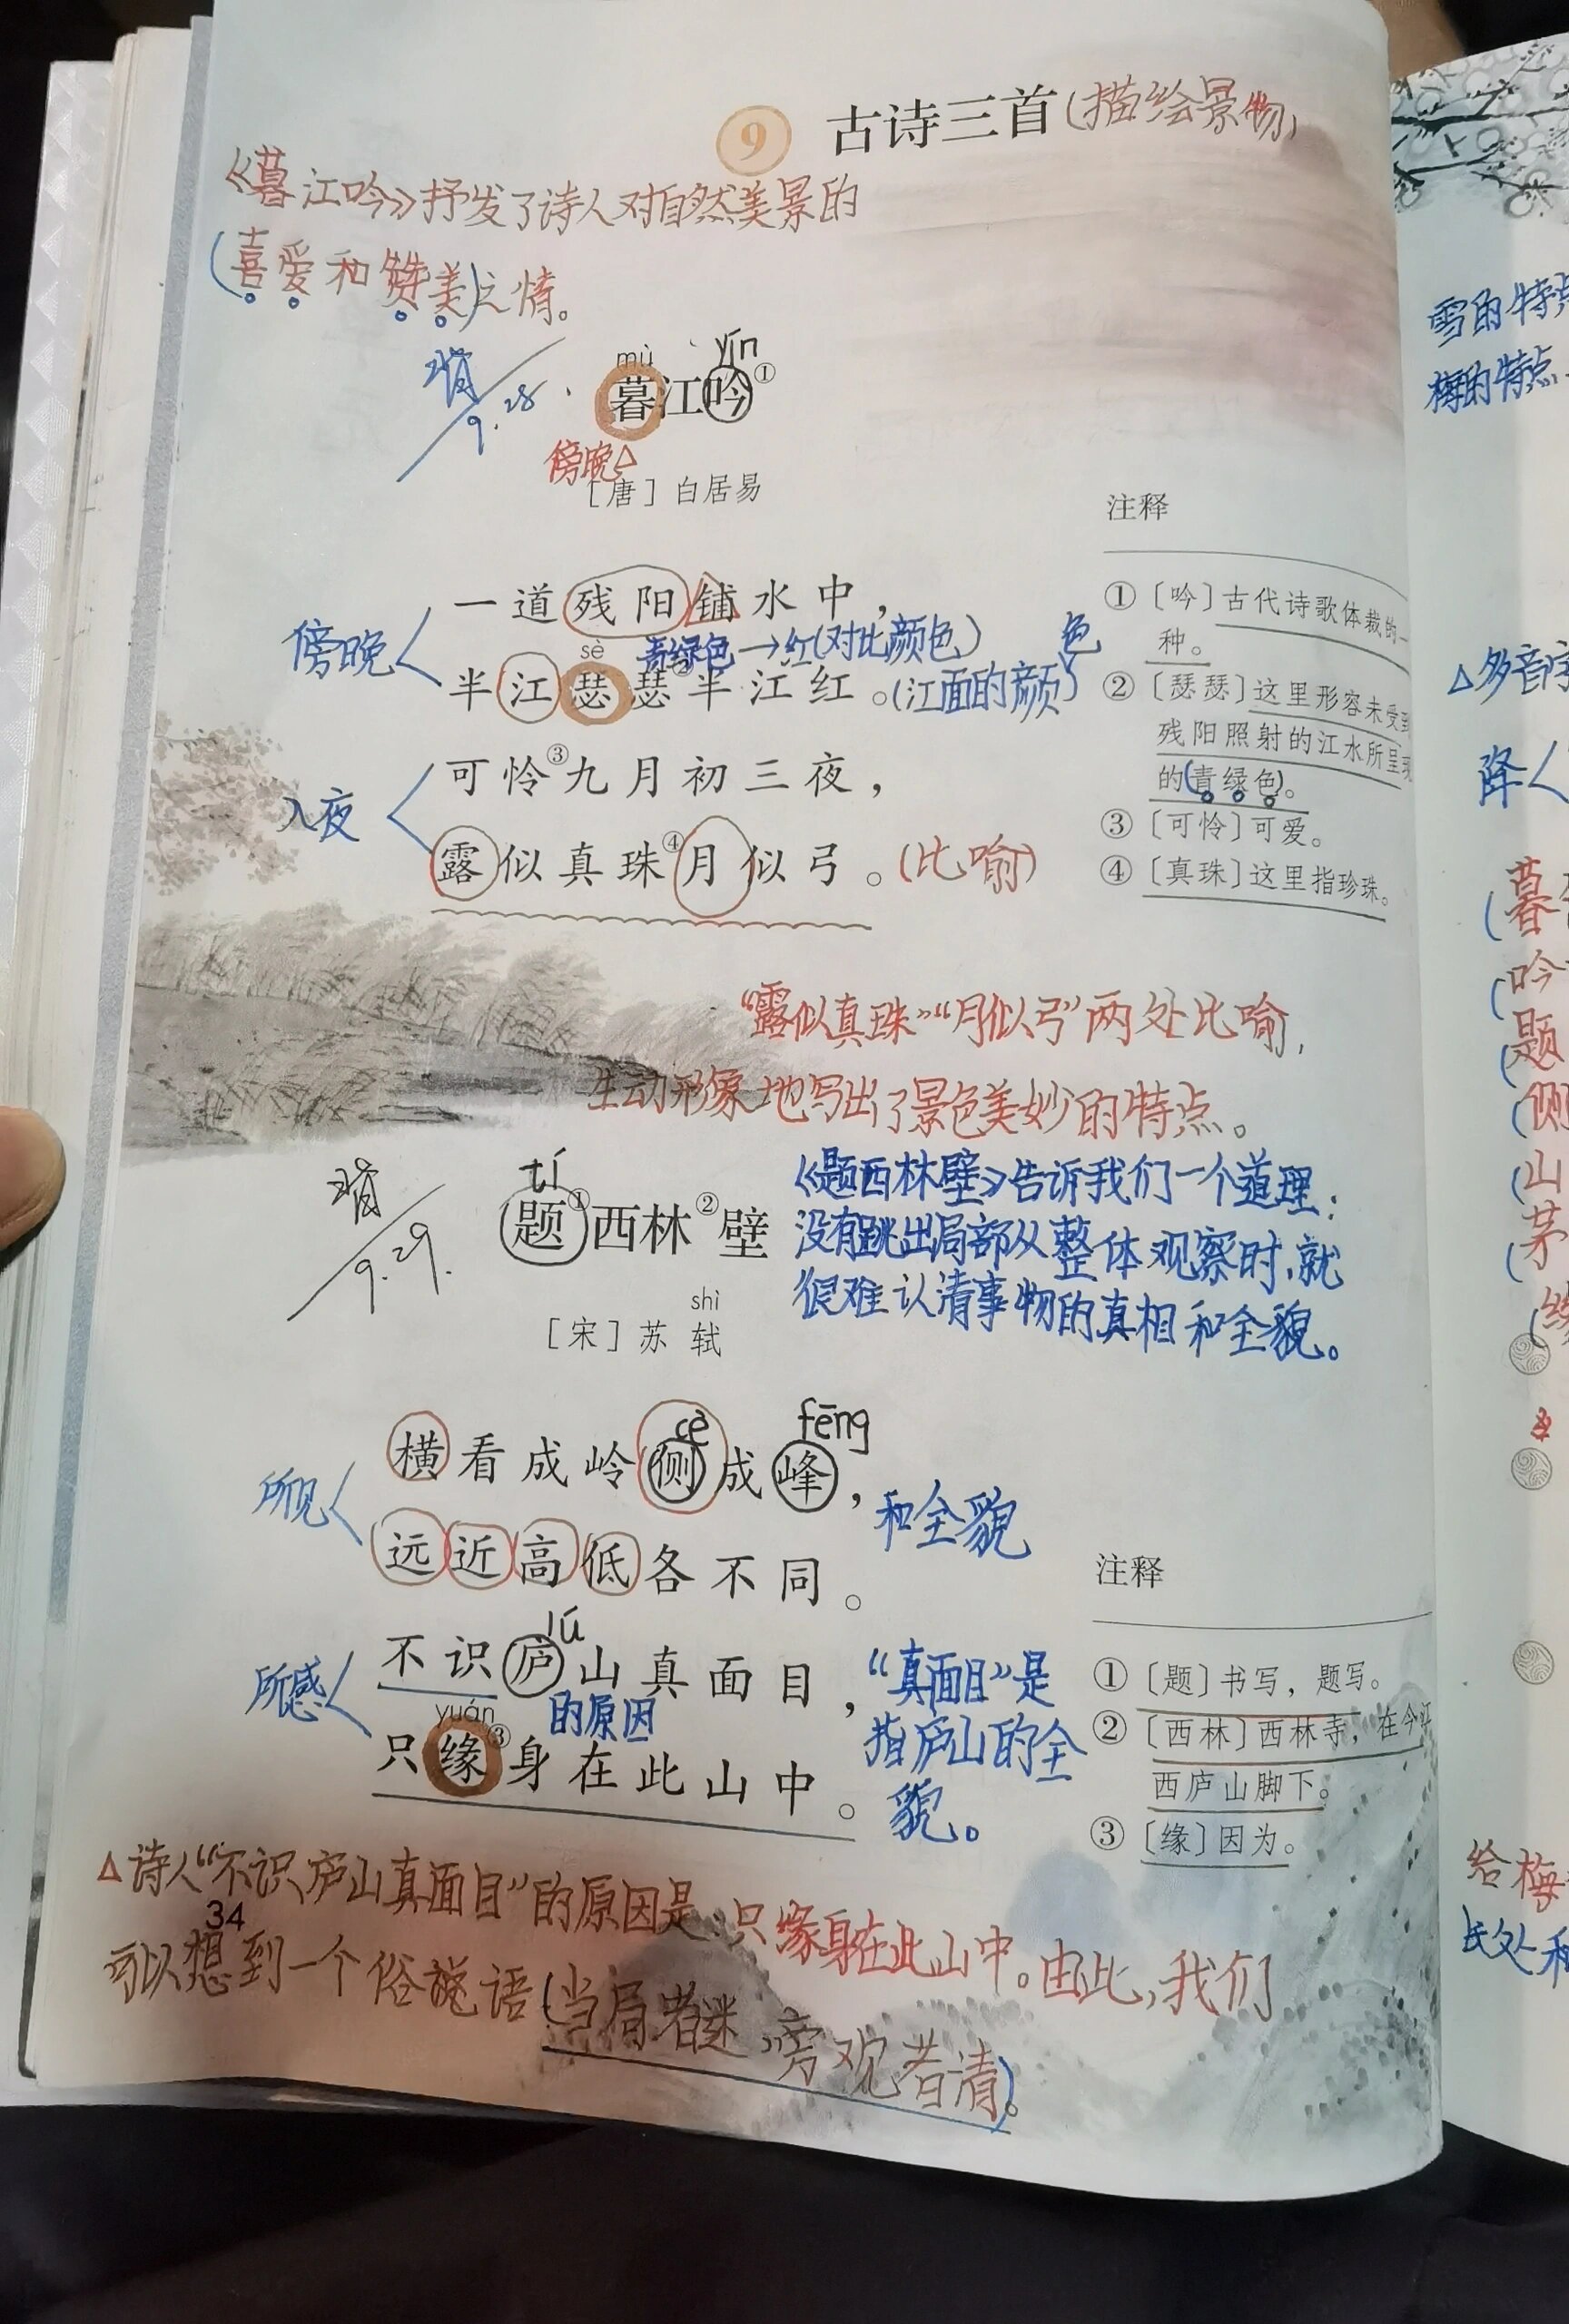 9 古诗三首(描绘景物)
《暮江吟》抒发了诗人对自然美景的
(喜爱和赞美)之情。
mù yín
背 9.28
暮江吟①
傍晚△
[唐] 白居易
注释
一道残阳铺水中，
傍晚
sè 青绿色→红(对比颜色)
半江瑟瑟②半江红。(江面的颜色)
可怜③九月初三夜，
入夜
露似真珠④月似弓。(比喻)
① [吟] 古代诗歌体裁的一
种。
② [瑟瑟] 这里形容未受到
残阳照射的江水所呈现
的(青绿色)。
③ [可怜] 可爱。
④ [真珠] 这里指珍珠。
“露似真珠”“月似弓”两处比喻,
生动形象地写出了景色美妙的特点。
背 9.29.
tí
题①西林②壁
shì
[宋] 苏轼
《题西林壁》告诉我们一个道理:
没有跳出局部从整体观察时,就
很难认清事物的真相和全貌。
cè fēng
横看成岭侧成峰，
所见
和全貌
远近高低各不同。
lú
不识庐山真面目，
所感
yuán 的原因
只缘③身在此山中。
“真面目”是
指庐山的全
貌。
注释
① [题] 书写，题写。
② [西林] 西林寺，在今江
西庐山脚下。
③ [缘] 因为。
△诗人“不识庐山真面目”的原因是:只缘身在此山中。由此,我们
34
可以想到一个俗语(当局者迷,旁观者清)。
雪的特点
梅的特点
△多音字
降
(暮
(吟
(题
(侧
(山
(茅
(缘
给梅
长处和